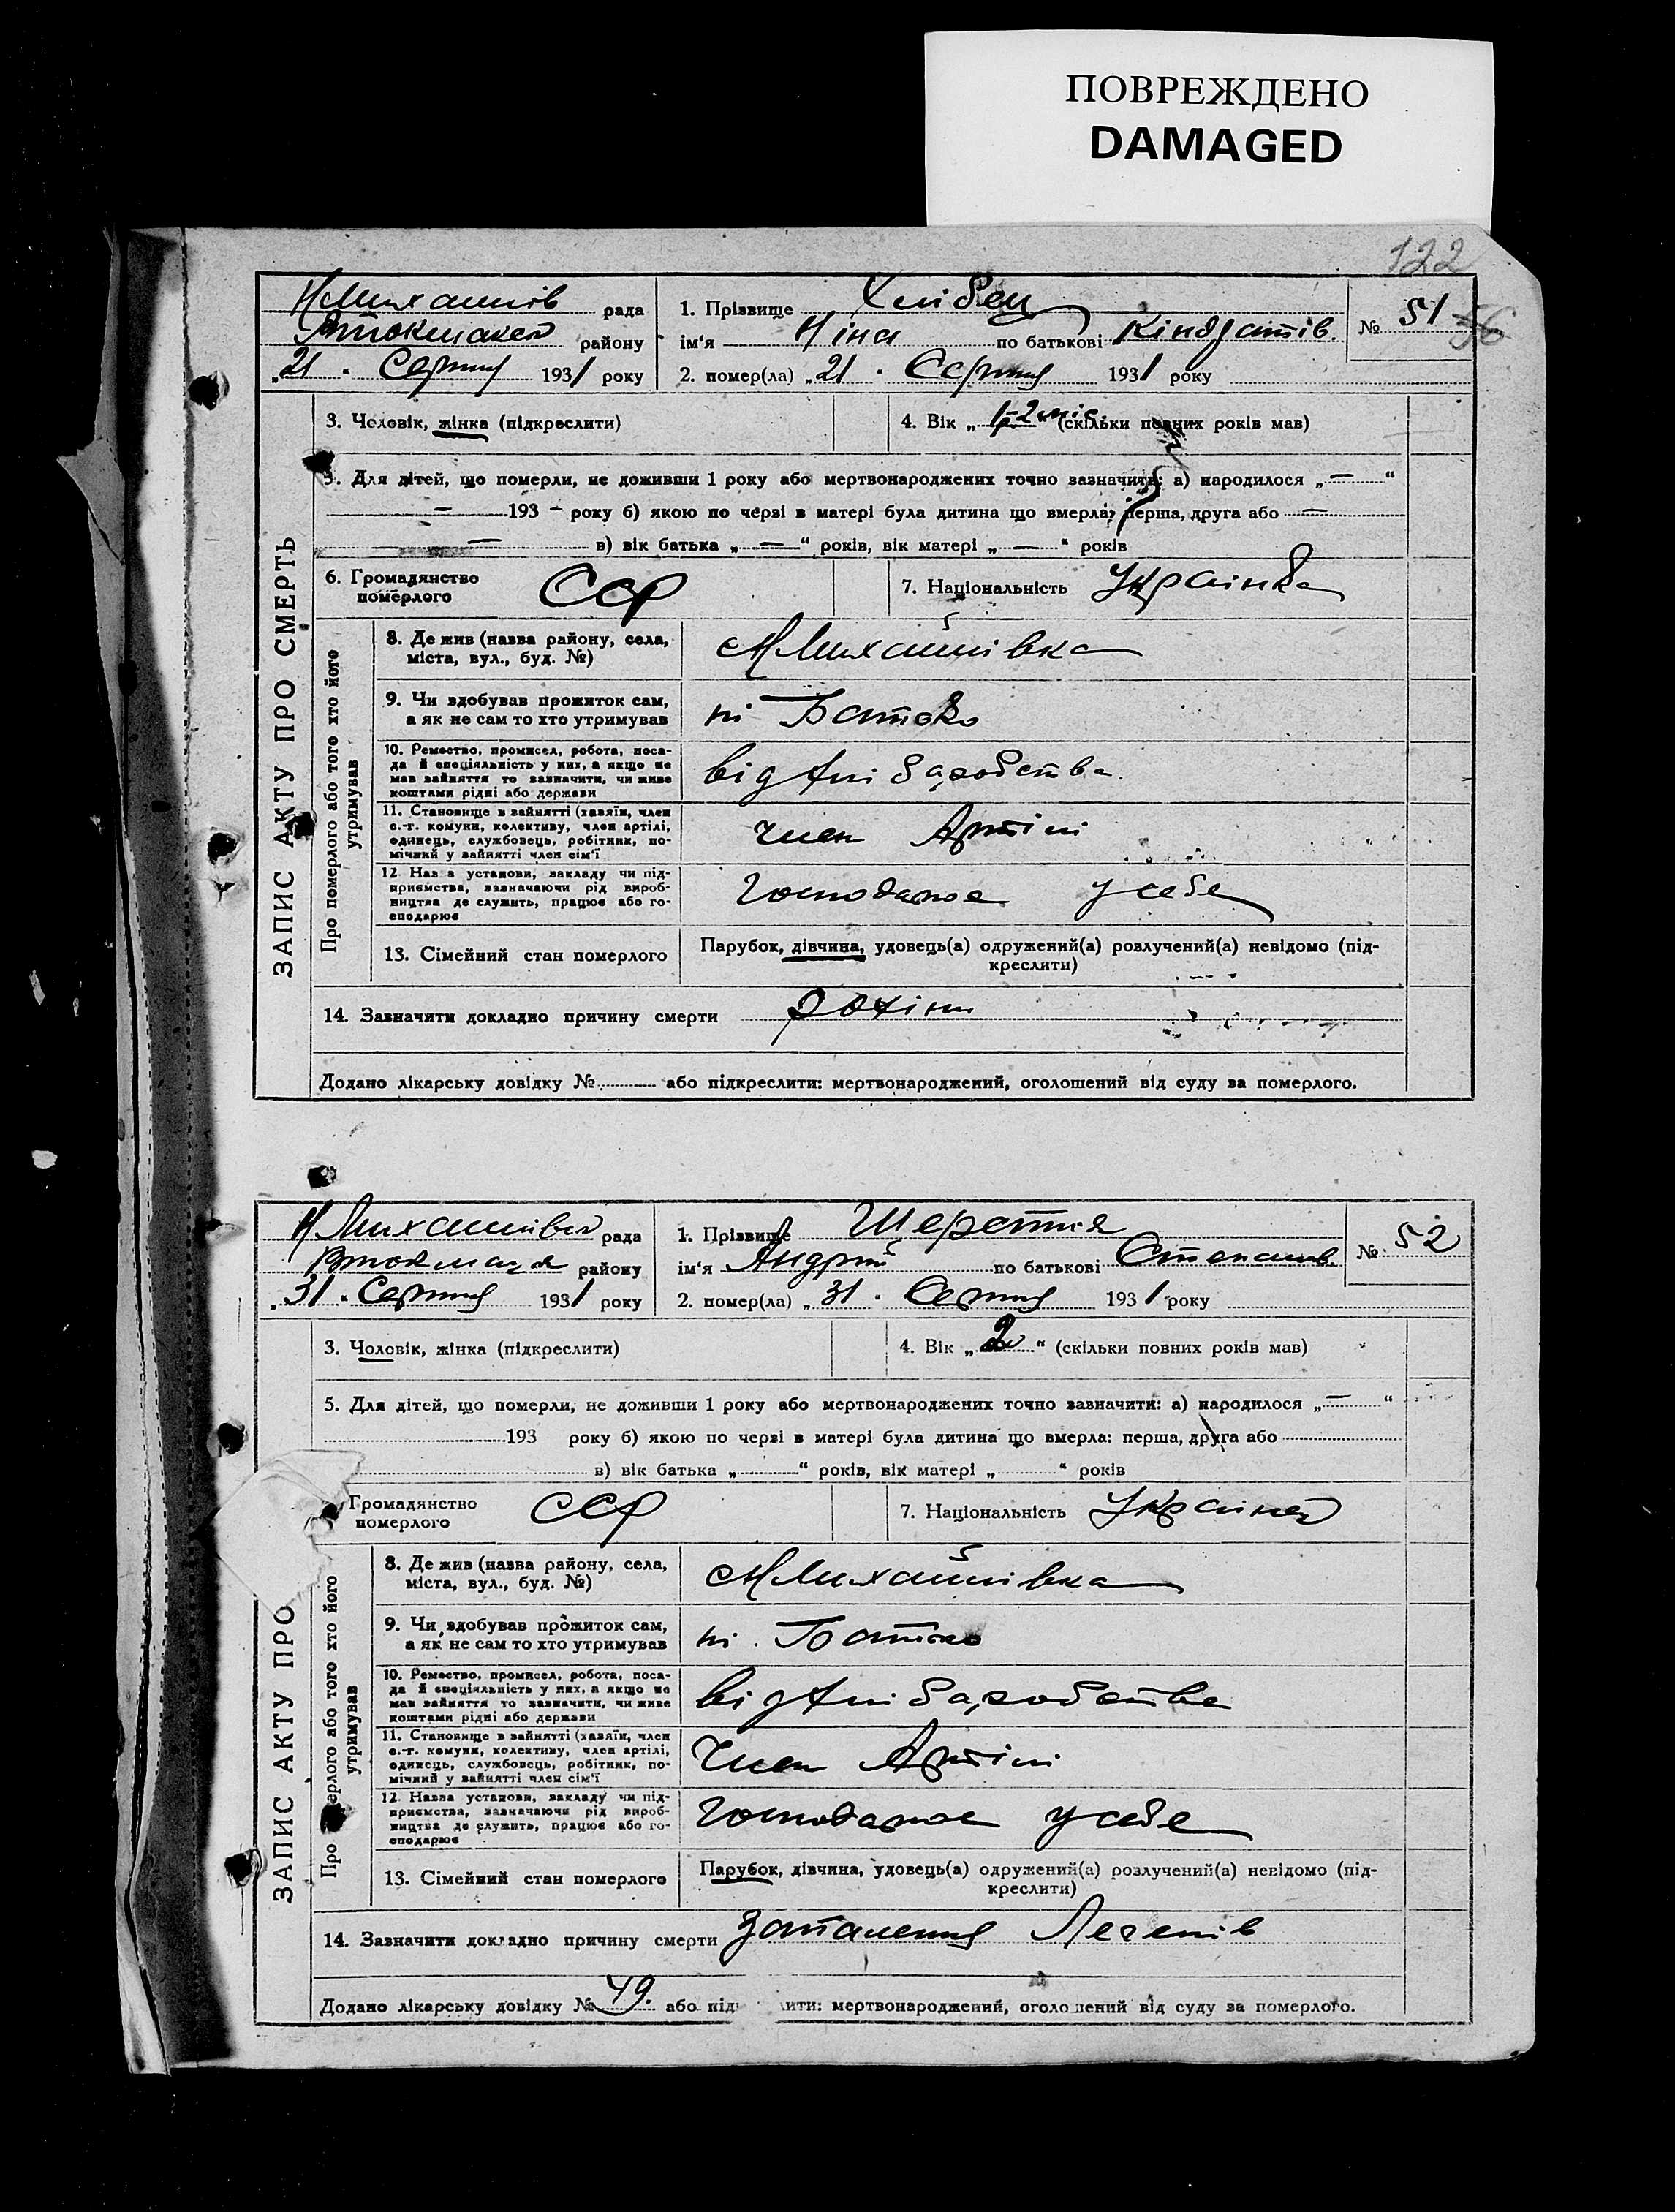 ПОВРЕЖДЕНО
DAMAGED
122
рада
району
„21“ Серпня 1931 року
1. Прізвище Хлібец
ім‘я Ніна по батькові Кіндратів.
2. помер(ла) „21“ Серпня 1931 року
№ 51 56
ЗАПИС АКТУ ПРО СМЕРТЬ
3. Чоловік, жінка (підкреслити)
4. Вік „1-2 міс“ (скільки повних років мав)
5. Для дітей, що померли, не доживши 1 року або мертвонароджених точно зазначити: а) народилося „—“
— 193 — року б) якою по черзі в матері була дитина що вмерла: перша, друга або —
— в) вік батька „—“ років, вік матері „—“ років
6. Громадянство
померлого
ССР
7. Національність Українка
Про померлого або того хто його
утримував
8. Де жив (назва району, села,
міста, вул., буд. №)
Михайлівка
9. Чи здобував прожиток сам,
а як не сам то хто утримував
ні Батько
10. Ремество, промисел, робота, поса-
да й спеціяльність у них, а якщо не
мав зайняття то зазначити, чи живе
коштами рідні або держави
від хлібаробства
11. Становище в зайнятті (хазяїн, член
с.-г. комуни, колективу, член артілі,
одинець, службовець, робітник, по-
мічний у зайнятті член сім‘ї
член Артілі
12 Назва установи, закладу чи під-
приємства, зазначаючи рід вироб-
ництва де служить, працює або го-
сподарює
Господарює у себе
13. Сімейний стан померлого
Парубок, дівчина, удовець(а) одружений(а) розлучений(а) невідомо (під-
креслити)
14. Зазначити докладно причину смерти рахіт
Додано лікарську довідку № або підкреслити: мертвонароджений, оголошений від суду за померлого.
рада
району
„31“ Серпня 1931 року
1. Прізвище Шерстюк
ім‘я Андрій по батькові Степанов.
2. помер(ла) „31“ Серпня 1931 року
№ 52
ЗАПИС АКТУ ПРО
3. Чоловік, жінка (підкреслити)
4. Вік „2“ (скільки повних років мав)
5. Для дітей, що померли, не доживши 1 року або мертвонароджених точно зазначити: а) народилося „—“
193 року б) якою по черзі в матері була дитина що вмерла: перша, друга або
в) вік батька „ “ років, вік матері „ “ років
Громадянство
померлого
ССР
7. Національність Українец
Про померлого або того хто його
утримував
8. Де жив (назва району, села,
міста, вул., буд. №)
Михайлівка
9. Чи здобував прожиток сам,
а як не сам то хто утримував
ні. Батько
10. Ремество, промисел, робота, поса-
да й спеціяльність у них, а якщо не
мав зайняття то зазначити, чи живе
коштами рідні або держави
від хлібаробства
11. Становище в зайнятті (хазяїн, член
с.-г. комуни, колективу, член артілі,
одинець, службовець, робітник, по-
мічний у зайнятті член сім‘ї
член Артілі
12. Назва установи, закладу чи під-
приємства, зазначаючи рід вироб-
ництва де служить, працює або го-
сподарює
Господарює у себе
13. Сімейний стан померлого
Парубок, дівчина, удовець(а) одружений(а) розлучений(а) невідомо (під-
креслити)
14. Зазначити докладно причину смерти Запалення Легенів
Додано лікарську довідку № 49. або підкреслити: мертвонароджений, оголошений від суду за померлого.